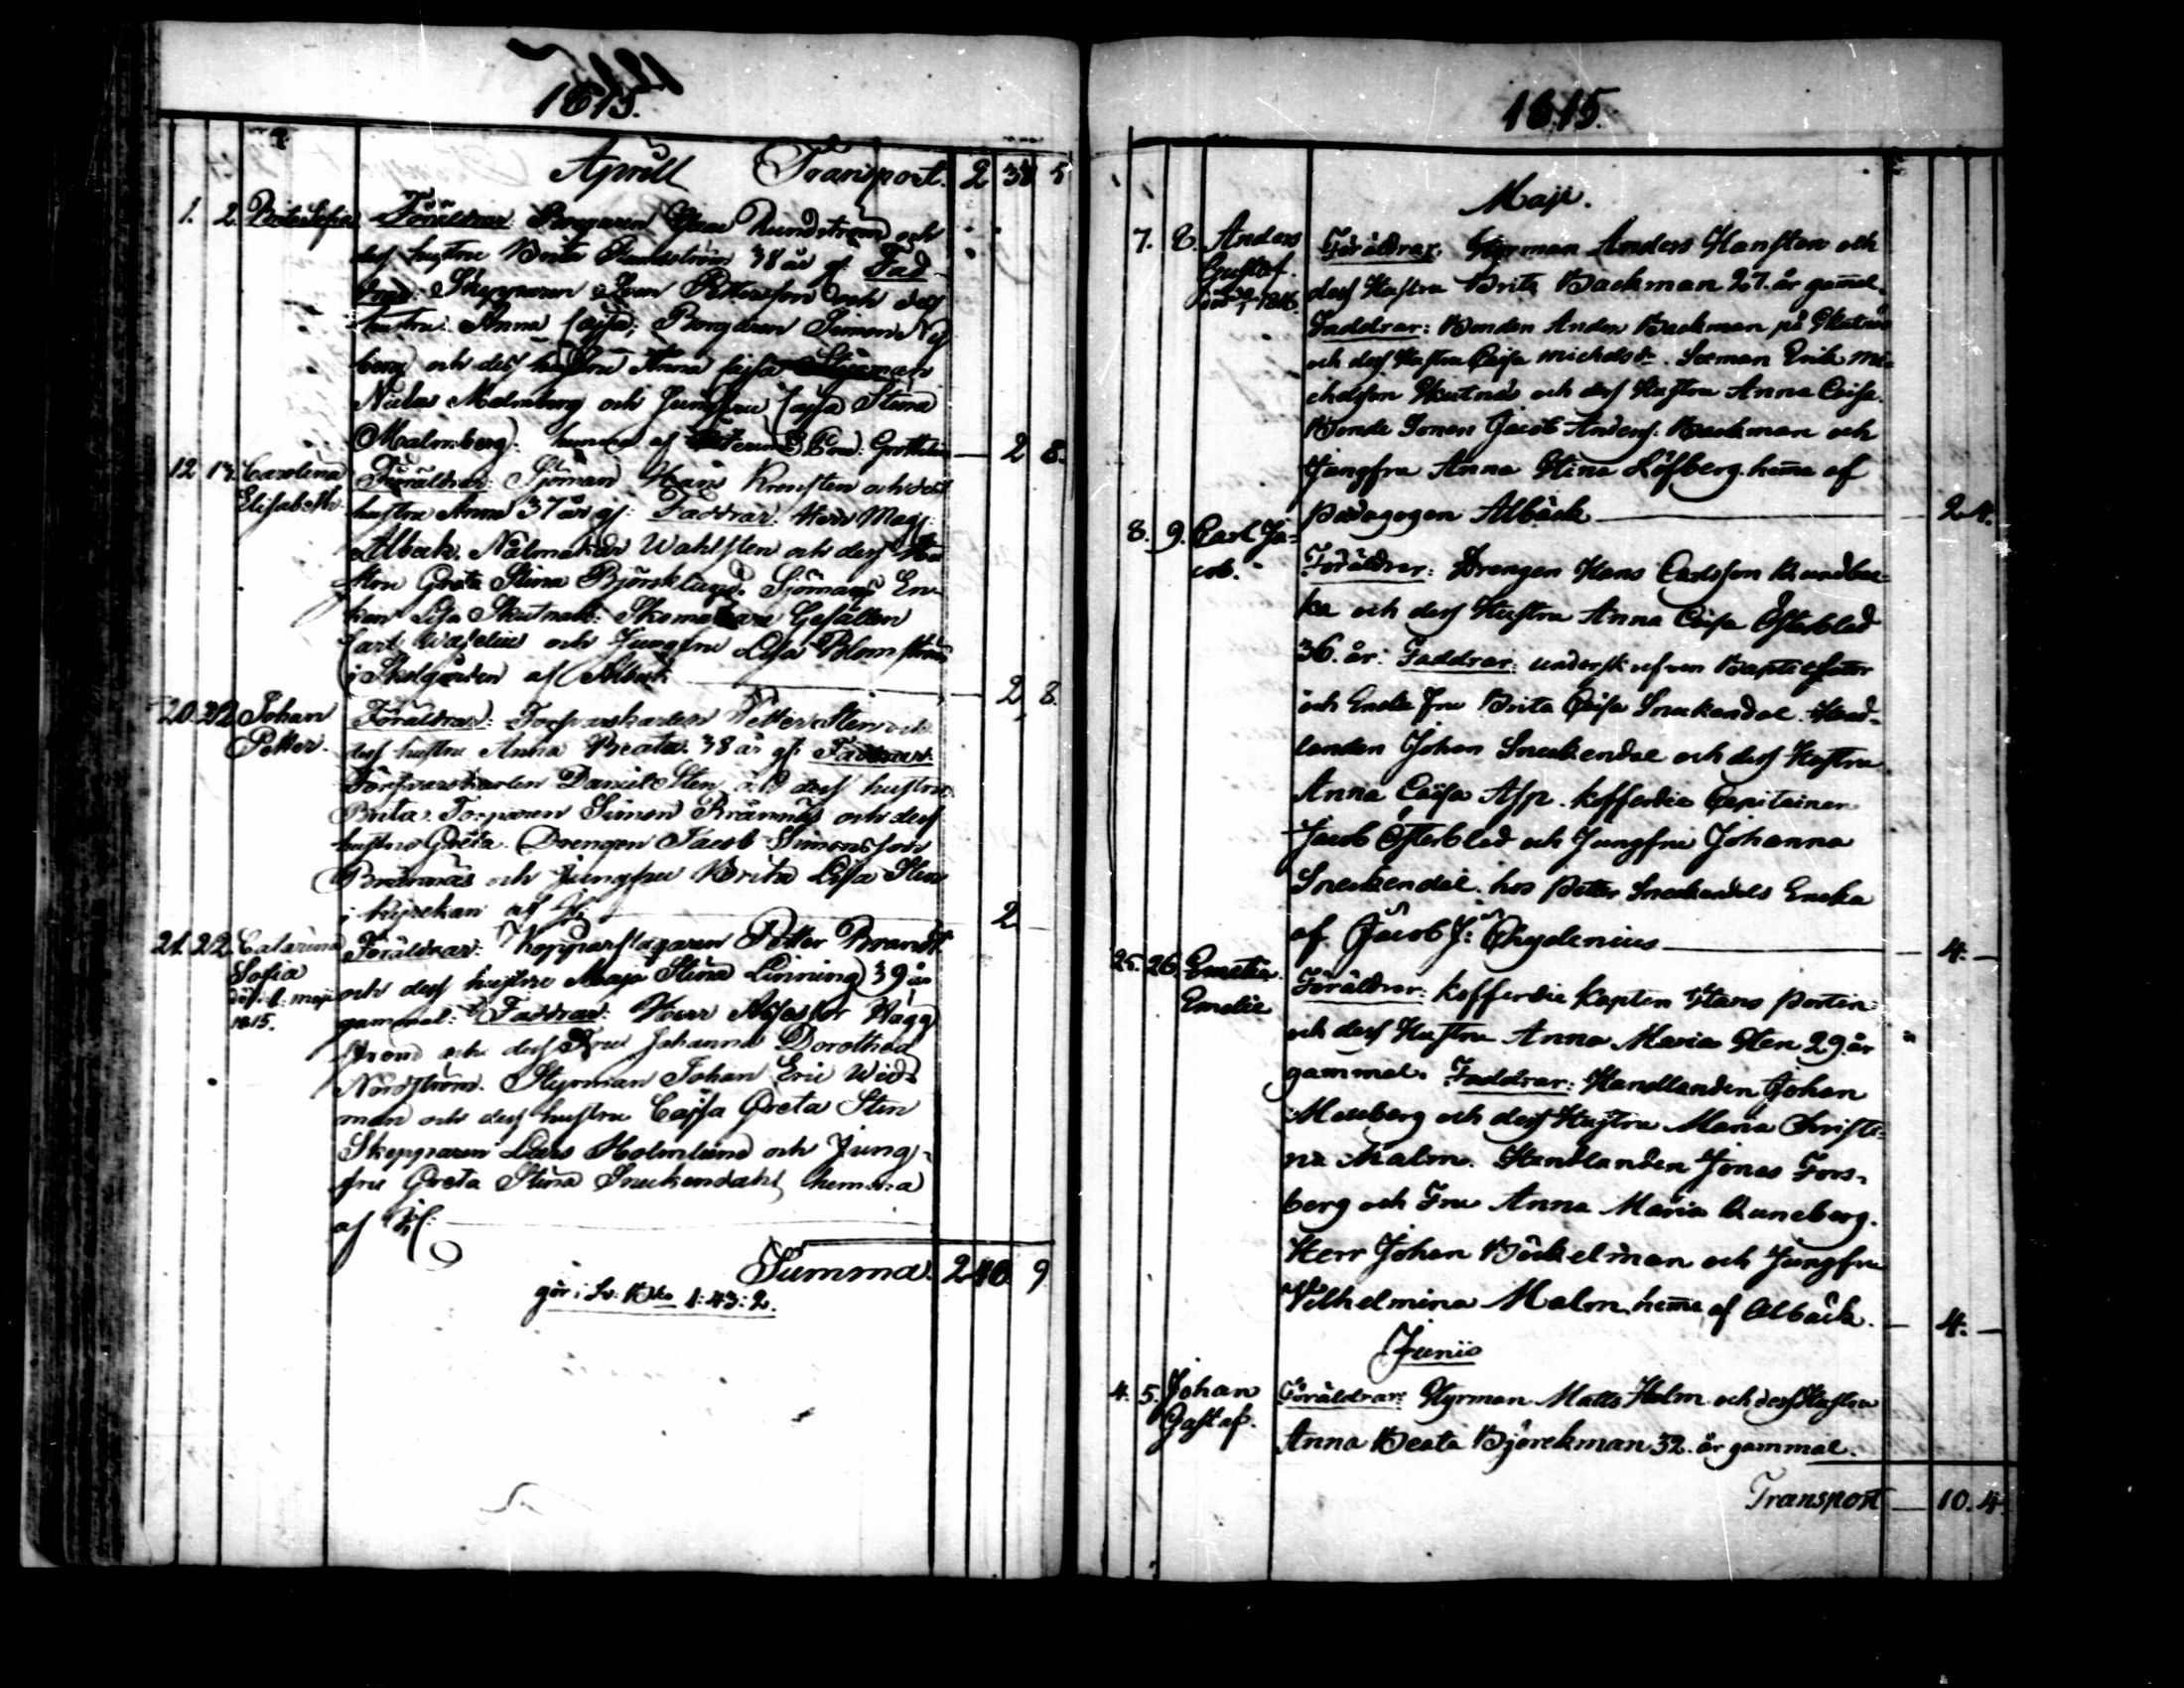 1815.
Aprill Transport. 2 38 5
1. 2. Brita Sofia Föräldrar Borgaren Isaac Rundström och
dess hustru Brita Rundström 38 år gl. Fad-
drar: Skepparen Petterson och dess
hustru Anna Cajsa, Borgaren Simon Ny
berg och dess hustru Anna Cajsa Styrman
Niclas Malmberg och Jungfru Cajsa Stina
Malmberg: hemma af — 2 8.
12 13. Carolina Föräldrar: Sjöman Hans och dess
Elisabeth. hustru Anna 37 år gl: Faddrar. Herr Mag:
Alback. Nålmakar Wahlsten och dess Hu
stru Greta Stina Björklund. Sjömans En-
kan Lisa Skutnabb: Skomakare Gesällen
Carl Waselius och Jungfru Lisa Blomström
i Skolgården af Alback — 2 8.
20. 22 Johan Föräldrar: Försvarskarlen Petter Sten och
Petter. dess hustru Anna Beata 38 år gl: Faddrar:
Försvarskarlen Daniel Sten och dess hustru
Brita. Torparen Simon Brännäs och dess
hustru Greta. Drengen Jacob Simonsson
Brännäs och Jungfru Brita Lisa Sten
i kyrckan af — 2
21. 22. Catarina Föräldrar: Kopparslagaren Petter Brandt
Sofia och dess hustru Maja Stina Linning 39 år
död. 1. maji gammal: Faddrar: Herr Assessor Wagg
1815. och dess Fru Johanna Dorothea
Nordström. Styrman Johan Eric Wid-
man och dess hustru Cajsa Greta Sten
Skepparen Lars Holmlund och Jung-
fru Greta Stina Sneckendahl hemma
af
Summa. 2 40 9
gör i Sv: Bko 1:43:2.
1815.
Maji.
7. 8. Anders Föräldrar: Styrman Anders Hansten och
Gustaf. dess Hustru Brita Backman 27. år gamel.
1816. Faddrar: Bonden Anders Backman på Skutnäs
och dess Hustru Caisa Michelsdr. Seeman Erik Mi-
chelsson Skutnäs och dess Hustru Anna Caisa.
Bonde Sonen Jacob Anders: Backman och
Jungfru Anna Stina Löfberg. hema af
Pædagogen Alback — 2 4.
8. 9. Carl Ja- Föräldrar: Drengen Hans Carlsson Rundbac-
cob. ka och dess Hustru Anna Caisa Österblad
36. år: Faddrar: underskrefven Baptisator
och Enke Fru Brita Caisa Sneckendal. Hand-
landen Johan Sneckendal och dess Hustru
Anna Caisa Asp. Kofferdie Capitainen
Jacob Österblad och Jungfru Johanna
Sneckendal. hos Petter Sneckendals Encka
af. Jacob J: Chydenius — 4. —
25. 26. Föräldrar: Kofferdie Kapten Hans Portin
Emelie och dess Hustru Anna Maria Sten 29. år
gammal. Faddrar: Handlanden Johan
och dess Hustru Maria Christi-
na Malm. Handlanden Jonas Fors-
berg och Fru Anna Maria Runeberg.
Herr Johan Böckelman och Jungfru
Wilhelmina Malm. hema af Alback. — 4. —
Junii
4. 5. Johan Föräldrar: Styrman Matts Holm och dess Hustru
Gustaf. Anna Beata Björckman 32. år gammal.
Transport — 10. 4.